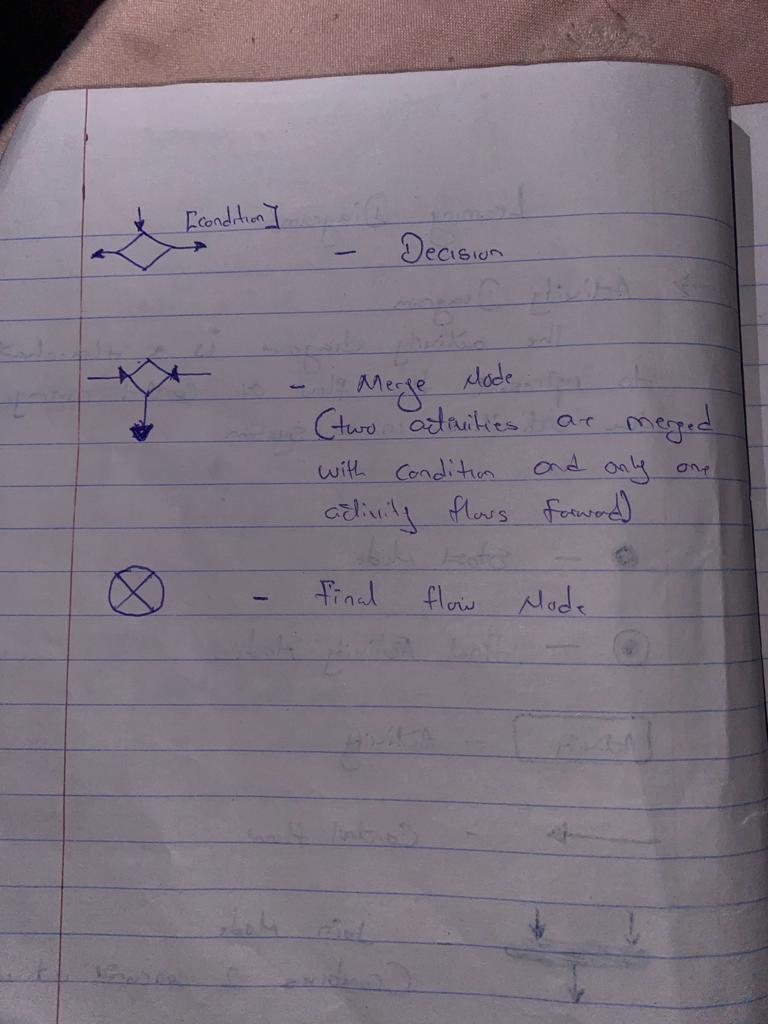 [condition]
- Decision
- Merge Node
(two activities are merged
with condition and only one
activity flows forward)
- Final flow Node